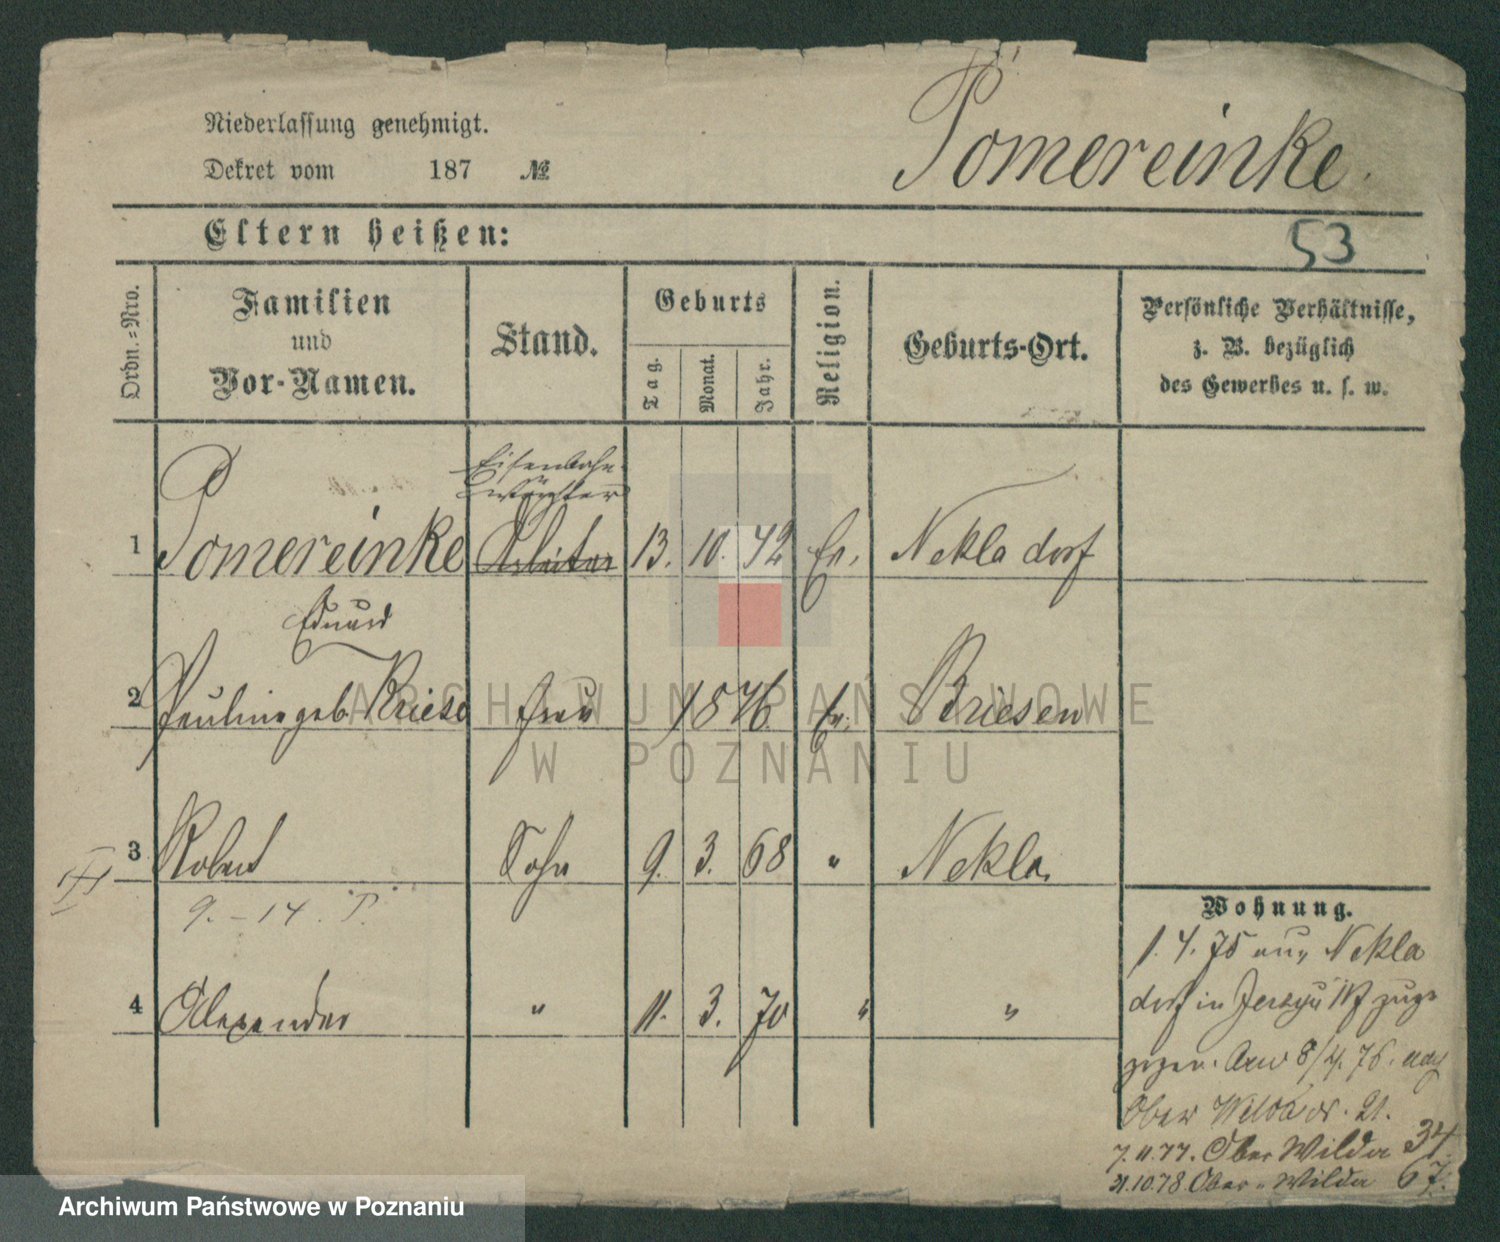 Niederlassung genehmigt.
Dekret vom 187 №
Pömereinke.
Eltern heißen:
53
Ordn.-Nro.
Familien
und
Vor-Namen.
Stand.
Geburts
Tag.
Monat.
Jahr.
Religion.
Geburts-Ort.
Persönliche Verhältnisse,
z. B. bezüglich
des Gewerbes u. s. w.
Eisenbahn
wärter
1 Pömereinke Arbeiter 13. 10. 42 Ev. Nekla dorf
Eduard
2 Pauline geb Kriese Frau 1846 Ev. Briesen
3 Robert Sohn 9. 3. 68 " Nekla.
9. - 14.
4 Alexander " 11. 3. 70 " "
Wohnung.
1. 4. 75 aus Nekla
dorf in
8/4. 76. nach
Ober Wilda 21.
7.11.77. Ober Wilda 34.
21.10.78 Ober-Wilda 67.
ARCHIWUM PAŃSTWOWE
W POZNANIU
Archiwum Państwowe w Poznaniu